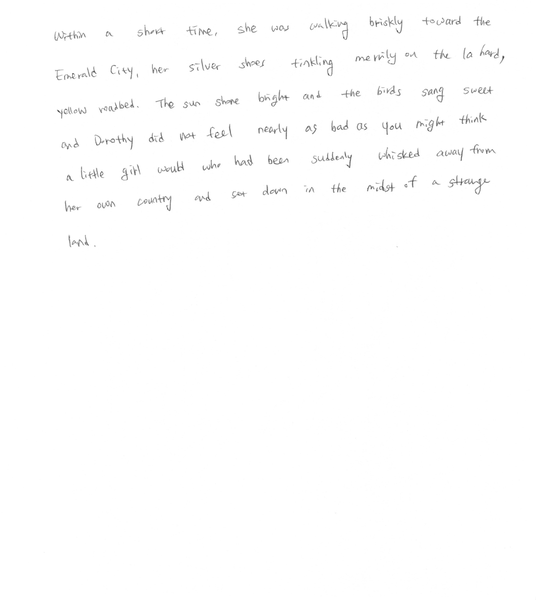 Within a short time, she was walking briskly toward the
Emerald City, her silver shoes tinkling merrily on the la hard,
yellow roadbed. The sun shone bright and the birds sang sweet
and Dorothy did not feel nearly as bad as you might think
a little girl would who had been suddenly whisked away from
her own country and set down in the midst of a strange
land.